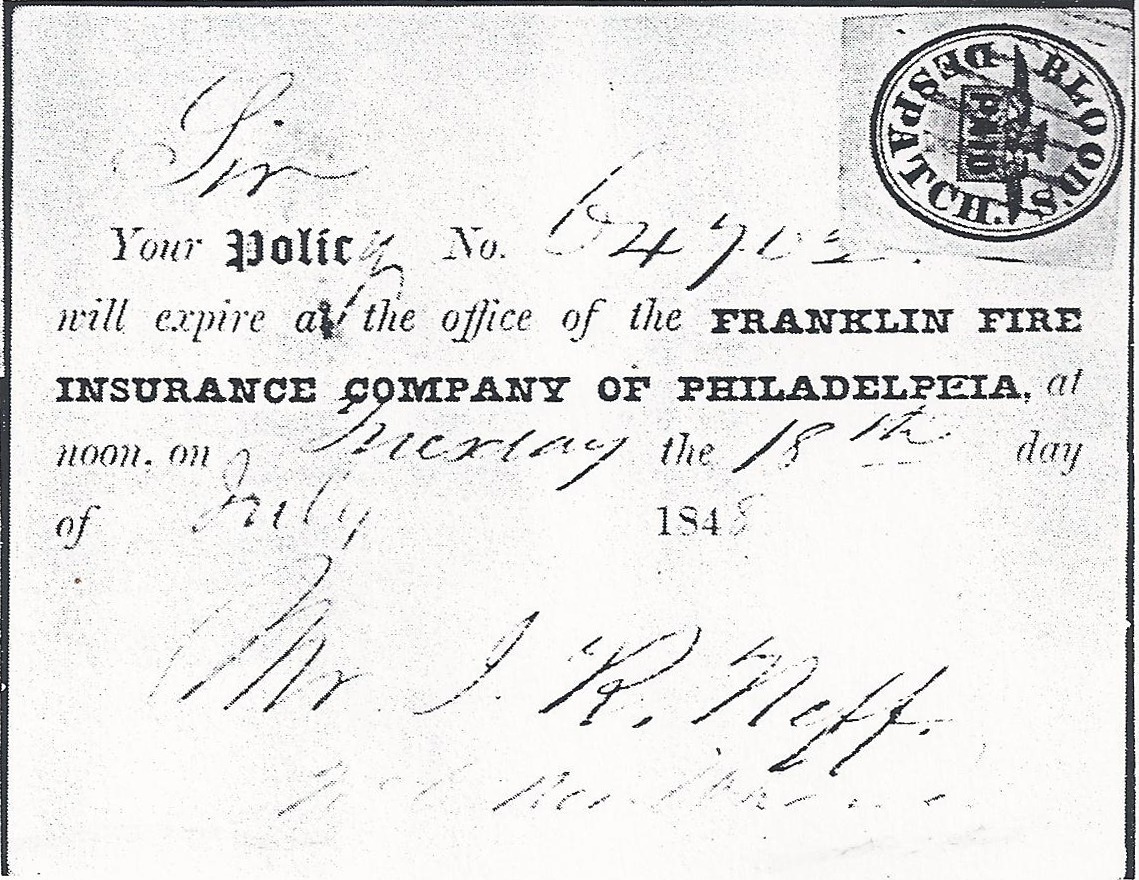 BLOOD'S
DESPATCH.
PAID
Sir
Your Policy No.
will expire at the office of the FRANKLIN FIRE
INSURANCE COMPANY OF PHILADELPEIA, at
noon, on Tuesday the 18th day
of July 1848
Mr J. R. Neff.